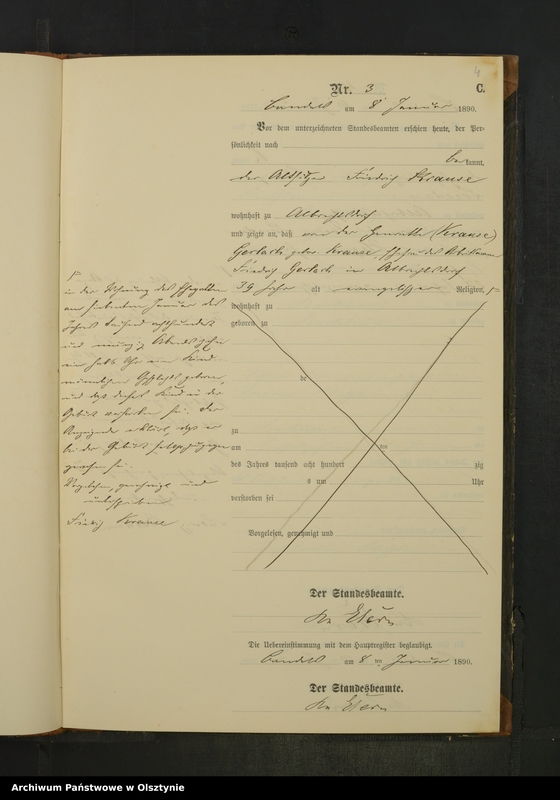 4
Nr. 3
C.
am 8 Januar 1890.
Vor dem unterzeichneten Standesbeamten erschien heute, der Per-
sönlichkeit nach
be kannt,
der Altsitzer Friedrich Krause
wohnhaft zu Albrechtsdorf
und zeigte an, daß von der Henriette (Krause)
Gerlach geb. Krause, Ehefrau des
Friedrich Gerlach in Albrechtsdorf
39 Jahre alt evangelischer Religion,
wohnhaft zu
geboren zu
be
zu
am ten
des Jahres tausend acht hundert zig
s um Uhr
verstorben sei
Vorgelesen, genehmigt und
in der Wohnung des Ehegatten
am siebenten Januar des
Jahres tausend achthundert
und neunzig Abends zehn
ein halb Uhr ein Kind
männlichen Geschlechts geboren
und daß dieses Kind in der
Geburt verstorben sei. Der
Anzeigende erklärt, daß er
bei der Geburt zugegen
gewesen sei.
Vorgelesen, genehmigt und
unterschrieben
Friedrich Krause
Der Standesbeamte.
Die Uebereinstimmung mit dem Hauptregister beglaubigt.
am 8 ten Januar 1890.
Der Standesbeamte.
Archiwum Państwowe w Olsztynie